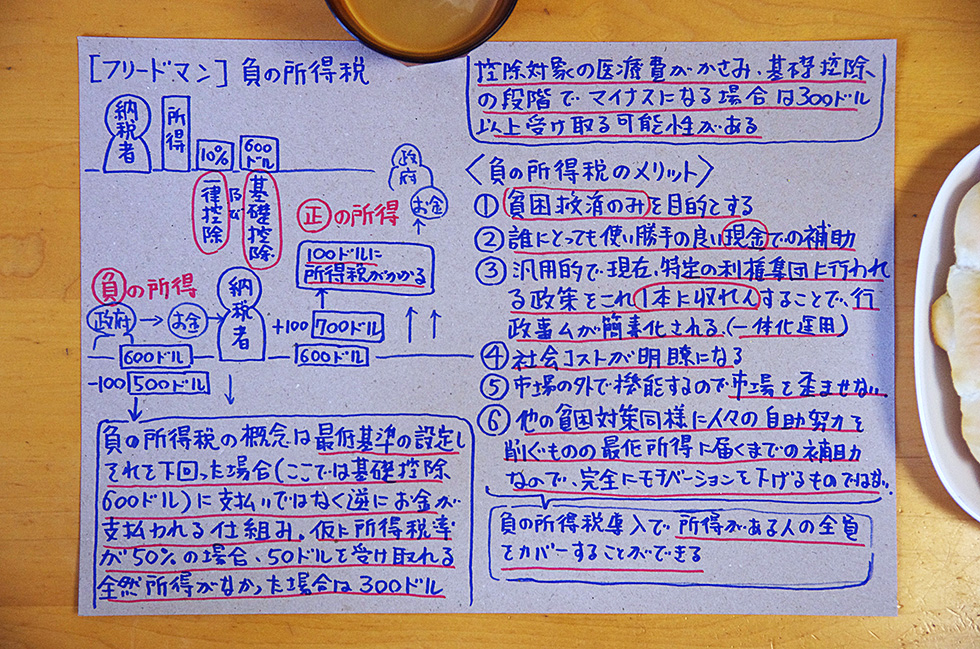 [フリードマン]負の所得税
納税者
所得
10%
600
ドル
一律控除
及び
基礎控除
政府
お金
正の所得
100ドルに
所得税がかかる
負の所得
政府→お金→
納税者
+100 700ドル
600ドル
600ドル
-100 500ドル
負の所得税の概念は最低基準の設定し
それを下回った場合(ここでは基礎控除
600ドル)に支払いではなく逆にお金が
支払われる仕組み。仮に所得税率
が50%の場合、50ドルを受け取れる
全然所得がなかった場合は300ドル
控除対象の医療費がかさみ、基礎控除
の段階でマイナスになる場合は300ドル
以上受け取る可能性がある
〈負の所得税のメリット〉
①貧困救済のみを目的とする
②誰にとっても使い勝手の良い現金での補助
③汎用的で現在、特定の利権集団に行われ
る政策をこれ1本に収れんすることで、行
政事ムが簡素化される、(一体化運用)
④社会コストが明瞭になる
⑤市場の外で機能するので市場を歪ませない
⑥他の貧困対策同様に人々の自助努力を
削ぐものの最低所得に届くまでの補助
なので、完全にモチベーションを下げるものではない。
負の所得税導入で所得がある人の全員
をカバーすることができる